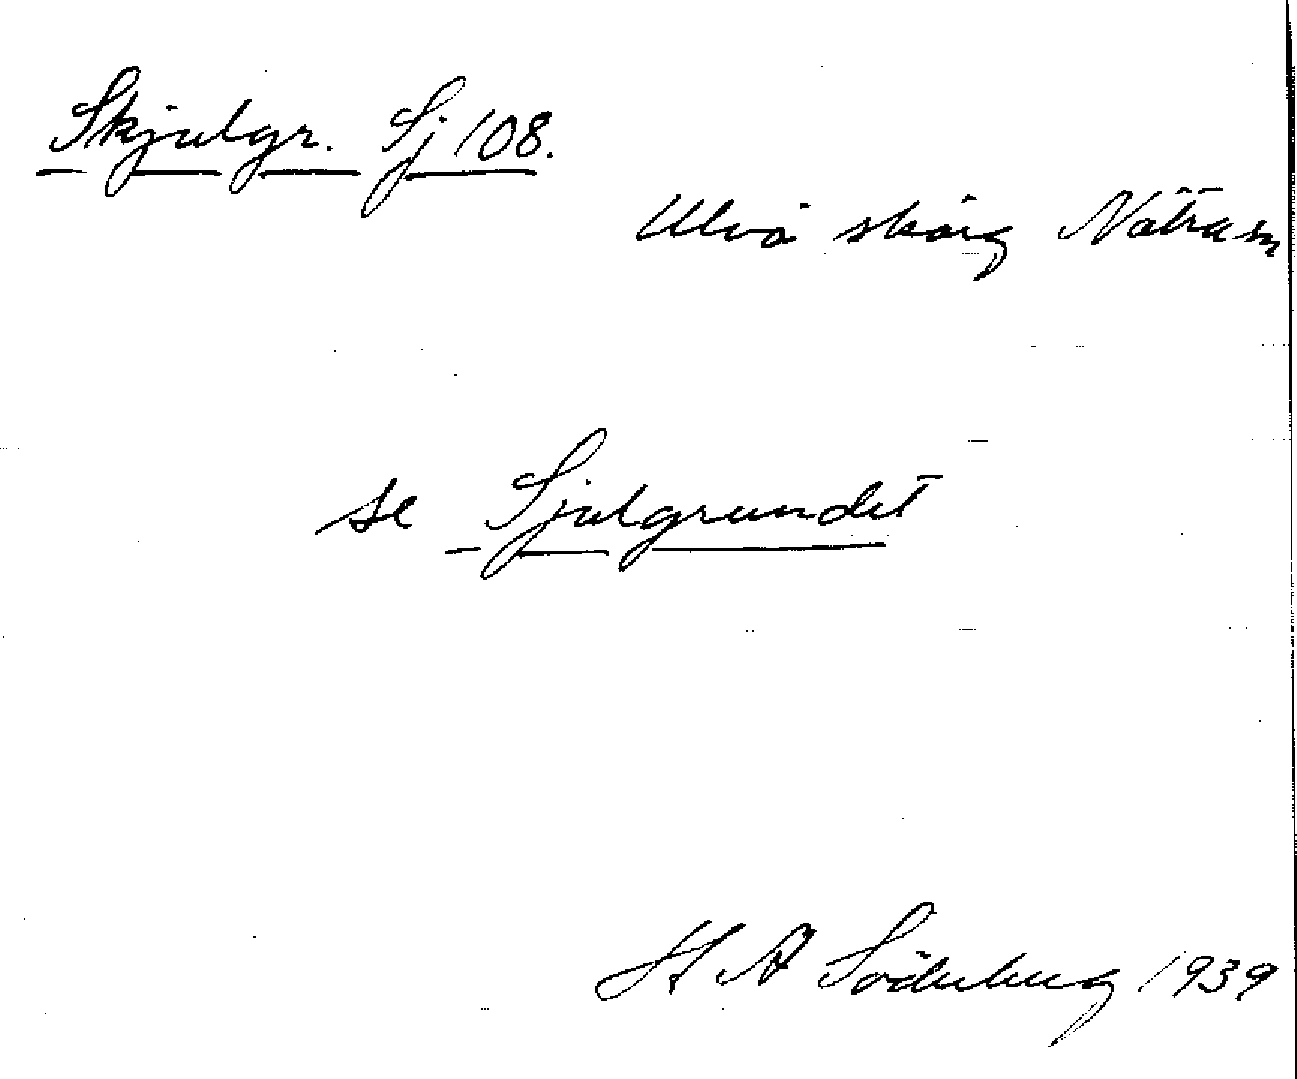 Skjulgr. Sj 108.
Ulvö skärg Nätra sn
se Sjulgrundet
H Å Söderberg 1939